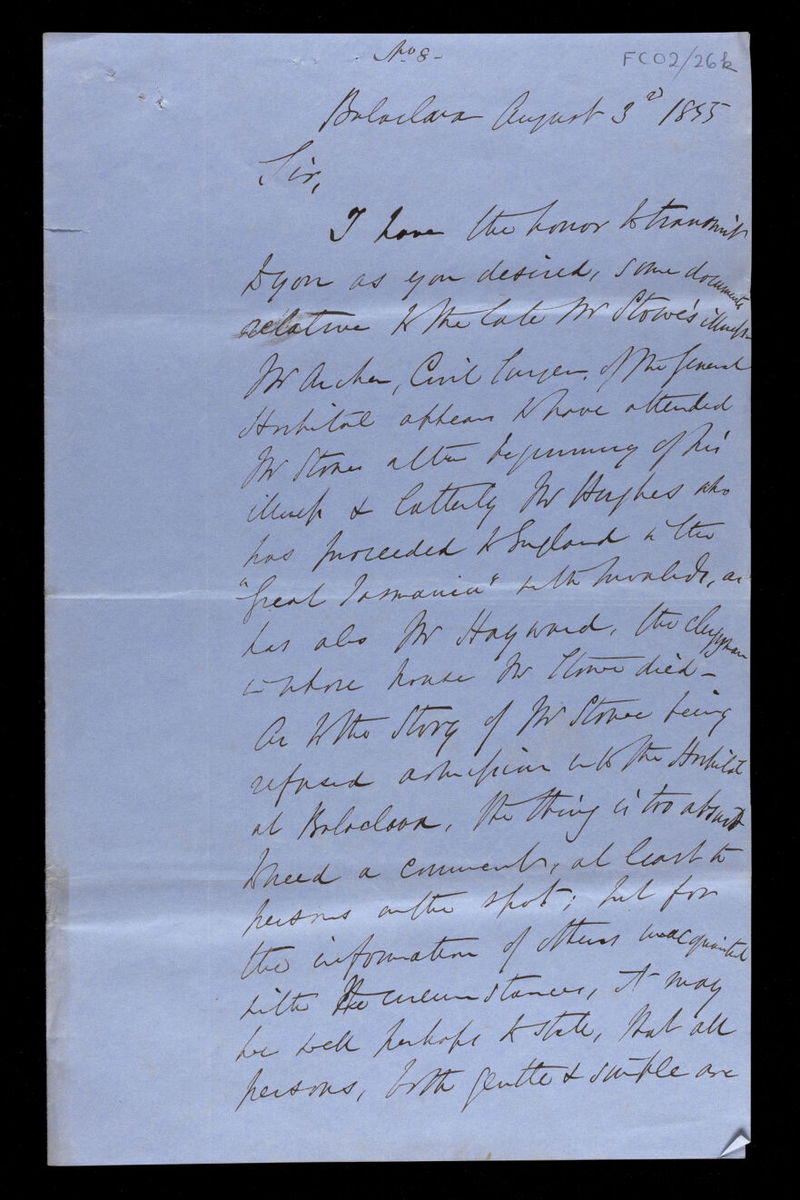 No 8-
FCO2/26k
Balaclava August 3d 1855
Sir,
I have the honor to transmit
to you as you desired, some documents
relative to the late Mr Stowe's illness
Mr Archer, Civil Surgeon, of the General
Hospital appears to have attended
Mr Stowe at the beginning of his
illness & latterly Mr Hughes who
has proceeded to England in the
"Great Tasmania" with Invalids, as
has also Mr Hayward, the clergyman
in whose house Mr Stowe died -
As to the story of Mr Stowe being
refused admission into the Hospital
at Balaclava, the thing is too absurd
to need a comment, at least to
persons on the spot; but for
the information of others unacquainted
with the circumstances, it may
be well perhaps to state, that all
persons, both gentle & simple are